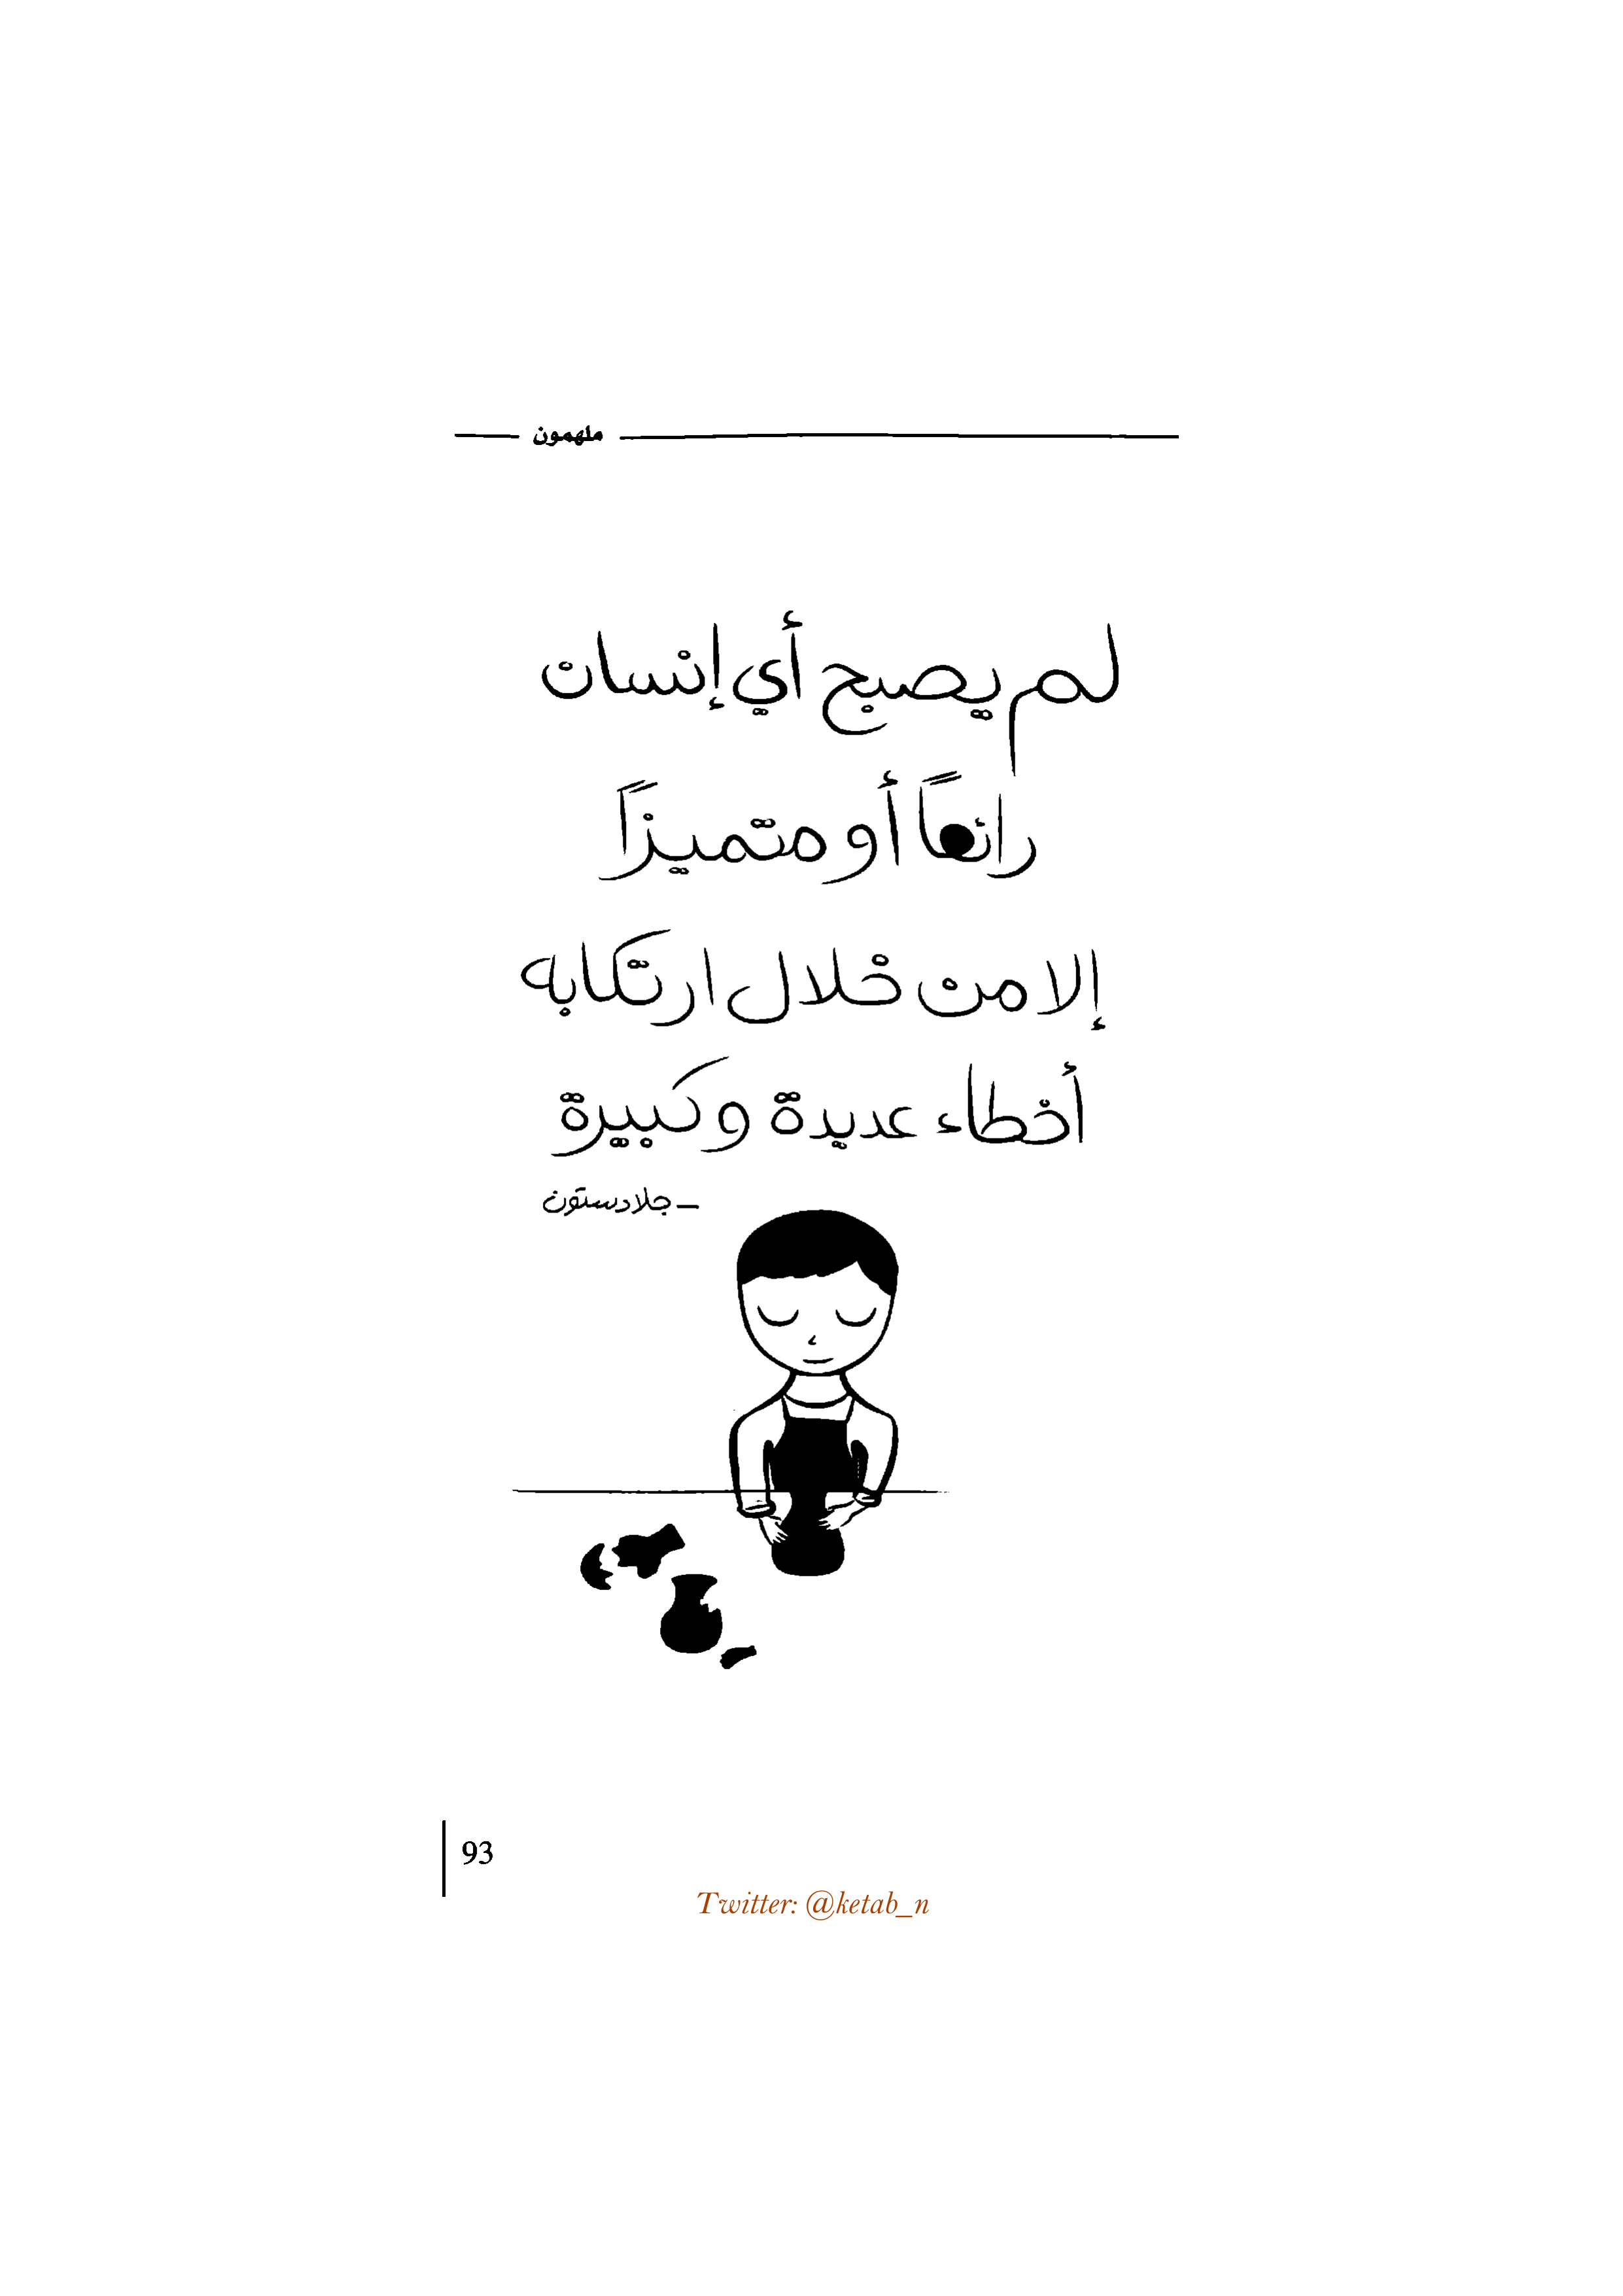 ملهمون
لم يصبح أي إنسان
رائعاً أو متميزاً
إلا من خلال ارتكابه
أخطاء عديدة وكبيرة
– جلادستون
93
Twitter: @ketab_n